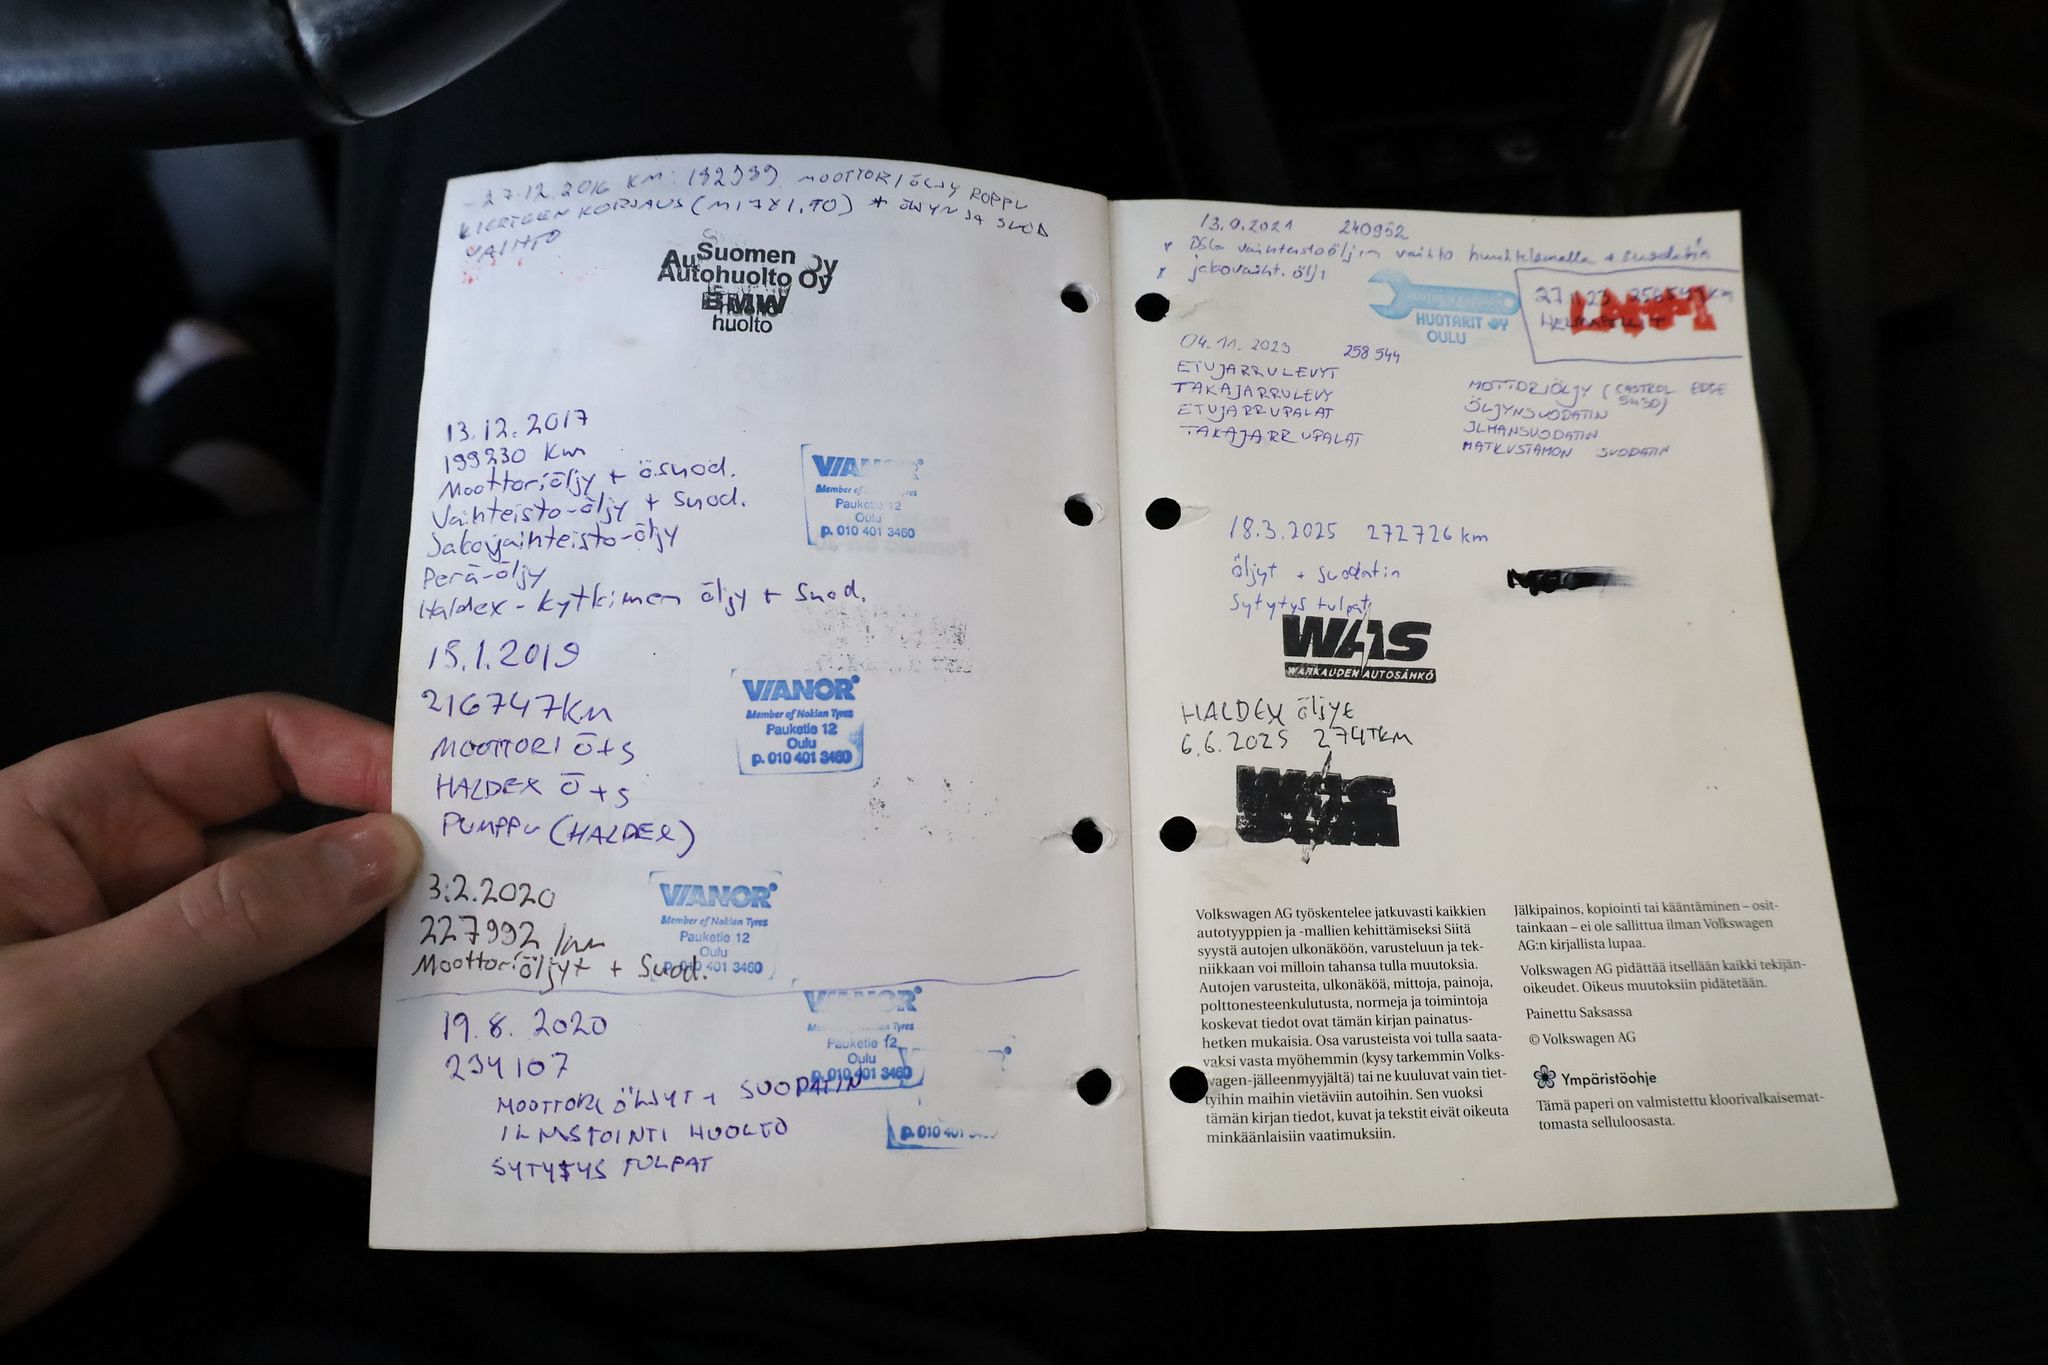 27.12.2016 KM: 192999 MOOTTORIÖLJY POPPU
KIERTEEN KORJAUS (M17X1,50) * ÖLJYN JA SUOD
VAIHTO
Suomen
Autohuolto Oy
BMW
huolto
13.12.2017
199230 km
Moottoriöljy + ö.suod.
Vaihteisto-öljy + suod.
Jakovaihteisto-öljy
Perä-öljy
Haldex-kytkimen öljy + suod.
VIANOR
Member of
Pauketie 12
Oulu
p. 010 401 3460
15.1.2019
216747KM
MOOTTORI Ö+S
HALDEX Ö+S
PUMPPU (HALDEX)
VIANOR
Member of Nokian Tyres
Pauketie 12
Oulu
p. 010 401 3460
3.2.2020
227992 km
Moottoriöljyt + Suod.
VIANOR
Member of Nokian Tyres
Pauketie 12
Oulu
p. 010 401 3460
19.8.2020
234107
MOOTTORI ÖLJYT + SUODATIN
ILMSTOINTI HUOLTO
SYTYTYS TULPAT
VIANOR
Pauketie 12
Oulu
p. 010 401 3460
p. 010 401
2021 240952
* DSG vaihteistoöljyn vaihto huuhtelemalla + suodatin
* jakovaiht. öljy
HUOTARIT OY
OULU
27 23 km
04.11.2023 258544
ETUJARRULEVYT
TAKAJARRULEVY
ETUJARRUPALAT
TAKAJARRUPALAT
MOTTORIÖLJY (CASTROL EDGE
5W30)
ÖLJYNSUODATIN
ILMANSUODATIN
MATKUSTAMON SUODATIN
18.3.2025 272726 km
öljyt + suodatin
Sytytys tulpat
WAS
WARKAUDEN AUTOSÄHKÖ
HALDEX öljyt
6.6.2025 274TKM
WAS
Volkswagen AG työskentelee jatkuvasti kaikkien
autotyyppien ja -mallien kehittämiseksi Siitä
syystä autojen ulkonäköön, varusteluun ja tek-
niikkaan voi milloin tahansa tulla muutoksia.
Autojen varusteita, ulkonäköä, mittoja, painoja,
polttonesteenkulutusta, normeja ja toimintoja
koskevat tiedot ovat tämän kirjan painatus-
hetken mukaisia. Osa varusteista voi tulla saata-
vaksi vasta myöhemmin (kysy tarkemmin Volks-
wagen-jälleenmyyjältä) tai ne kuuluvat vain tiet-
tyihin maihin vietäviin autoihin. Sen vuoksi
tämän kirjan tiedot, kuvat ja tekstit eivät oikeuta
minkäänlaisiin vaatimuksiin.
Jälkipainos, kopiointi tai kääntäminen – osit-
tainkaan – ei ole sallittua ilman Volkswagen
AG:n kirjallista lupaa.
Volkswagen AG pidättää itsellään kaikki tekijän-
oikeudet. Oikeus muutoksiin pidätetään.
Painettu Saksassa
© Volkswagen AG
Ympäristöohje
Tämä paperi on valmistettu kloorivalkaisemat-
tomasta selluloosasta.